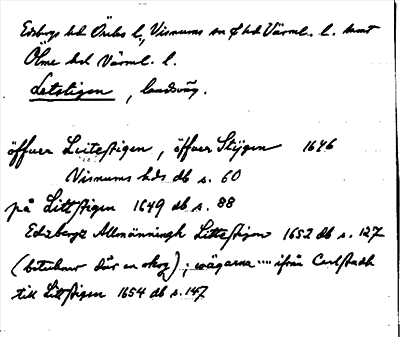 Edsbergs hd Örebro l., Visnums sn o hd Värml. l. samt
Ölme hd Värml. l.
Letstigen, landsväg.
öffuer Luitestigen, öffuer Stijgen 1646
Visnums hds db s. 60
på Littstigen 1649 db s. 88
Edzbergz Allmänningh Littestigen 1652 db s. 127
(betecknar där en skog); wägarna .... ifrån Carlstadh
till Littstigen 1654 db s. 147